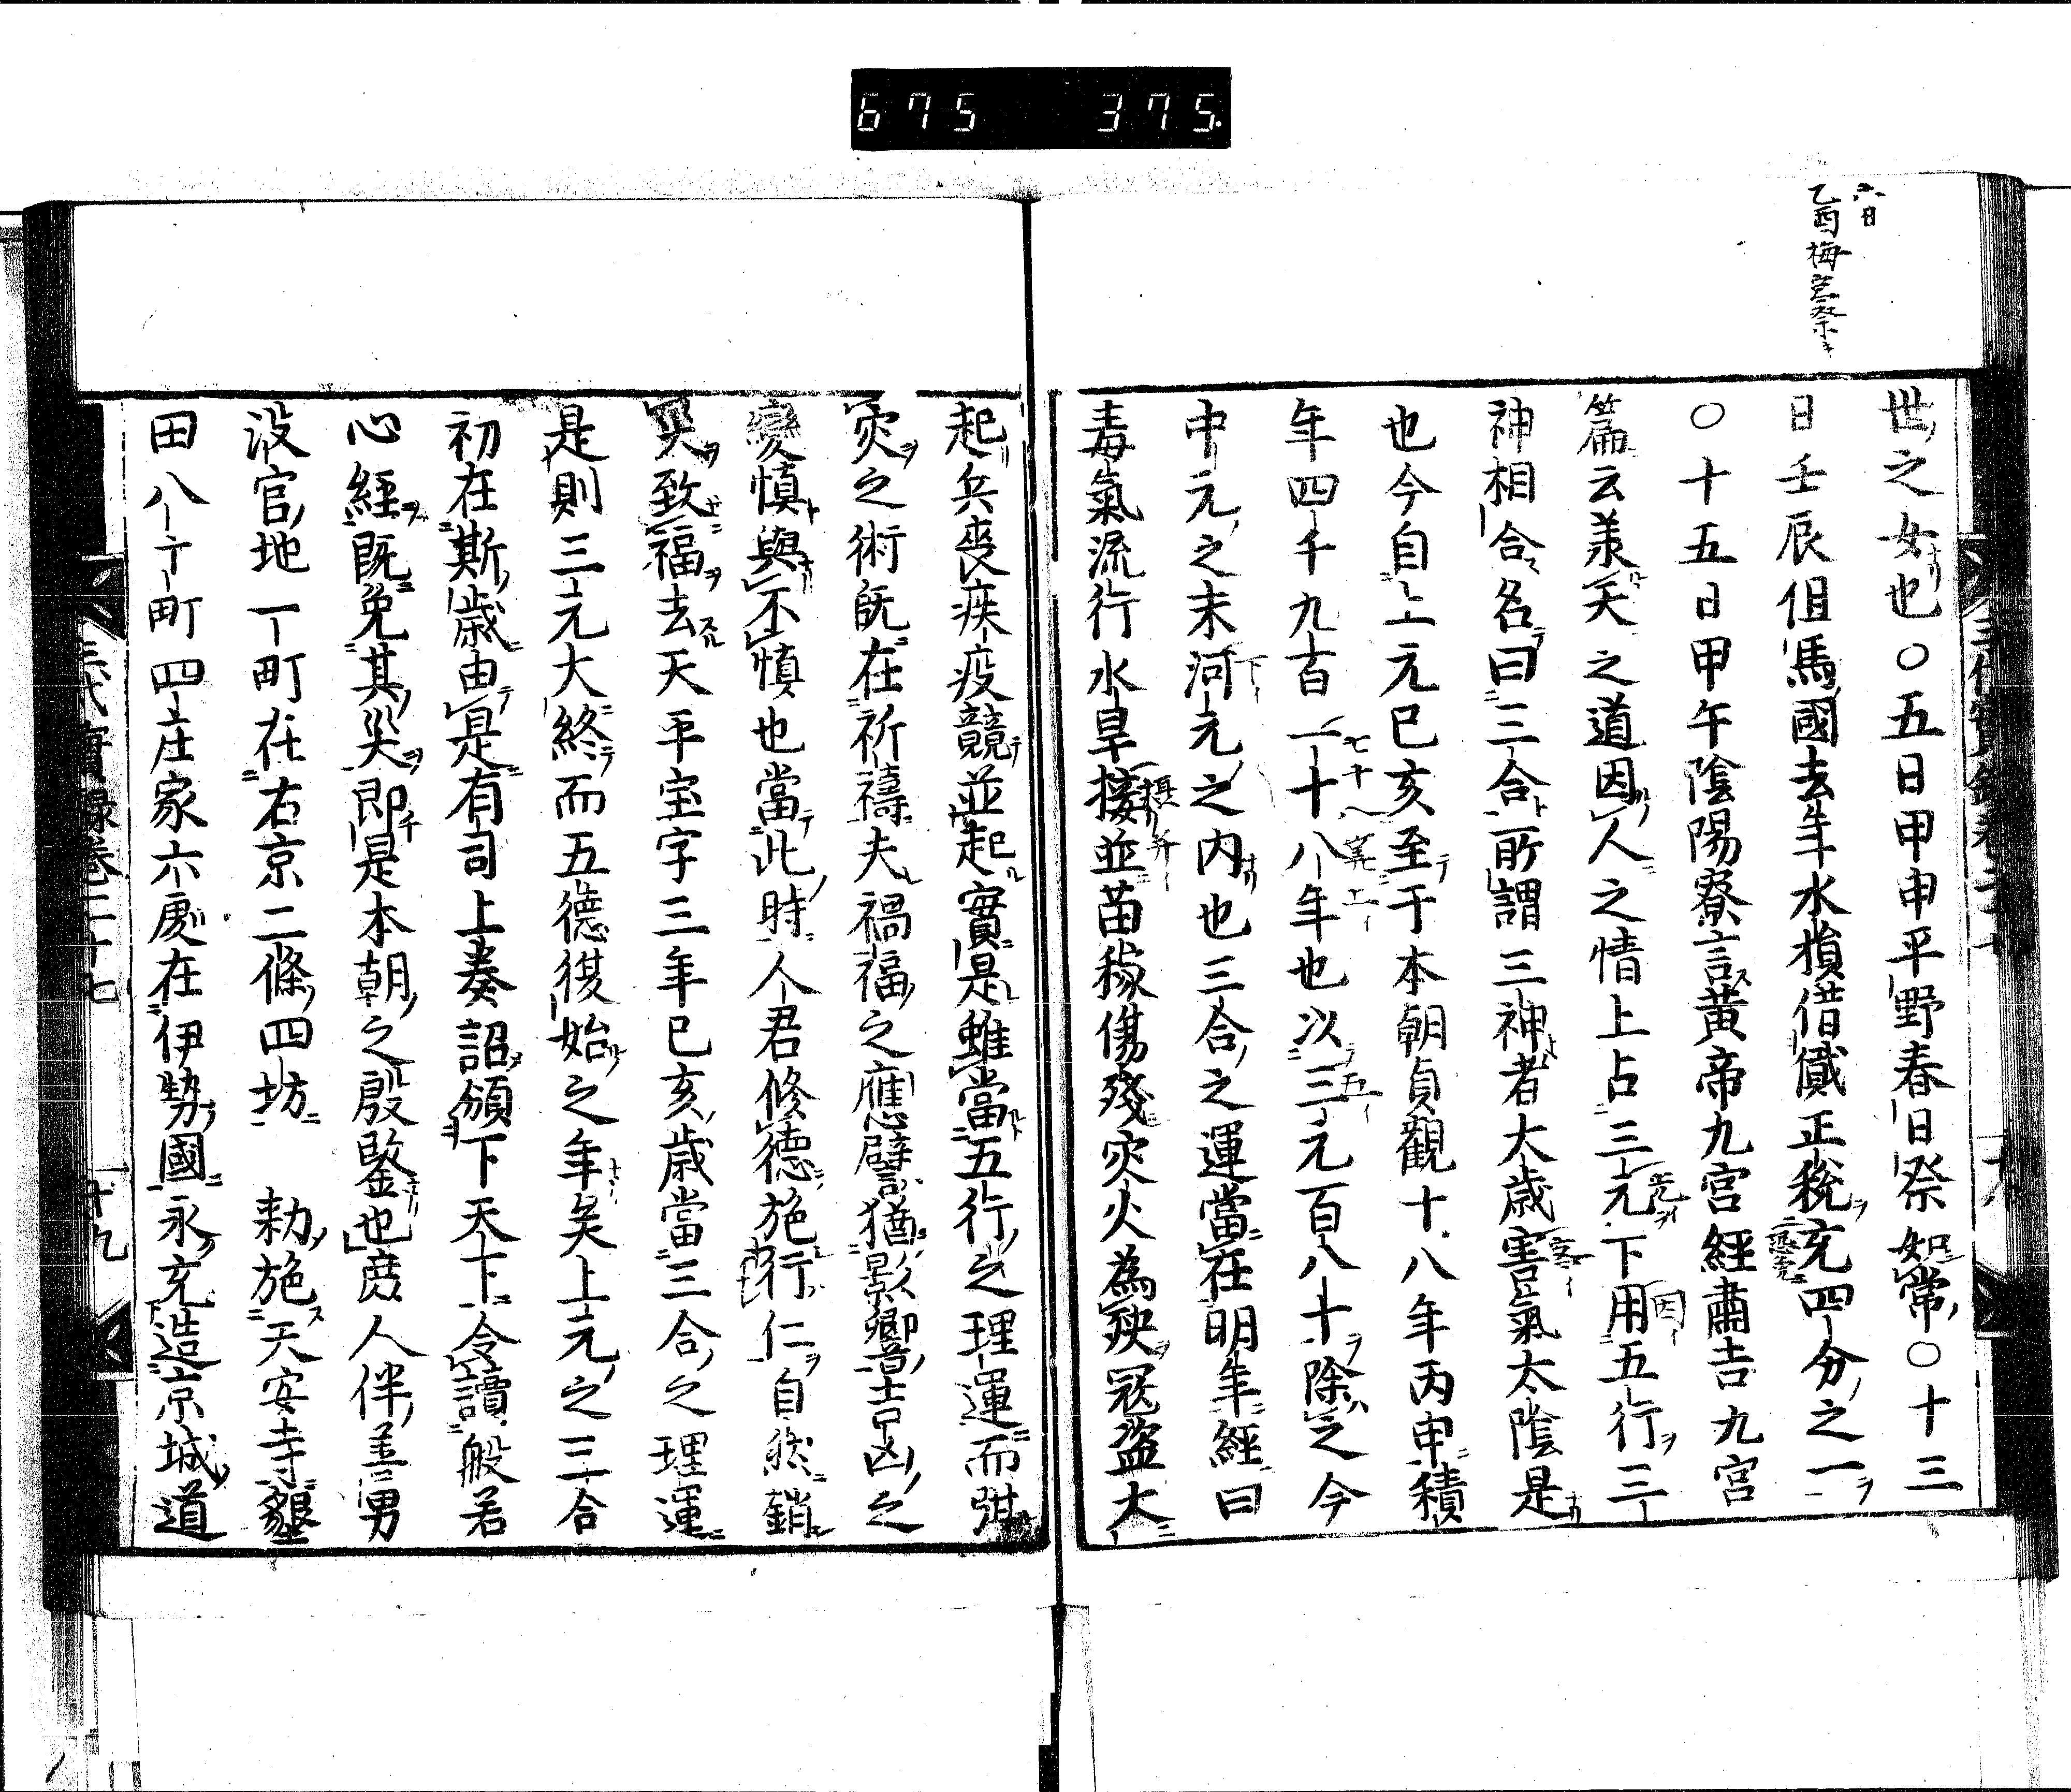 675 375.
六日
乙酉梅宮祭
世之女也〇五日甲申平野春日祭如常〇十三
日壬辰但馬國去年水損借貸正税充四分之一
〇十五日甲午陰陽寮言黄帝九宮經肅吉九宮
篇云羕天之道因人之情上占三元下用五行三
神相合名曰三合所謂三神者大歳害氣太陰是
也今自上元己亥至于本朝貞觀十八年丙申積
年四千九百一十八年也以三元百八十除之今
中元之末河元之内也三合之運當在明年經曰
毒氣流行水旱接並苗稼傷殘灾火為殃冦盗大
起兵喪疾疫競並起實是雖當五行之理運而弭
灾之術既在祈禱夫禍福之應譬猶影響吉凶之
變慎與不慎也當此時人君修德施行仁自然銷
災致福去天平宝字三年己亥歳當三合之理運
是則三元大終而五德復始之年矣上元之三合
初在斯歳由是有司上奏詔頒下天下令讀般若
心經既免其災即是本朝之殷鍳也庶人伴善男
没官地一町在右京二條四坊 勅施天安寺墾
田八十町四庄家六處在伊勢國永充造京城道
三代實録卷二十七
十九